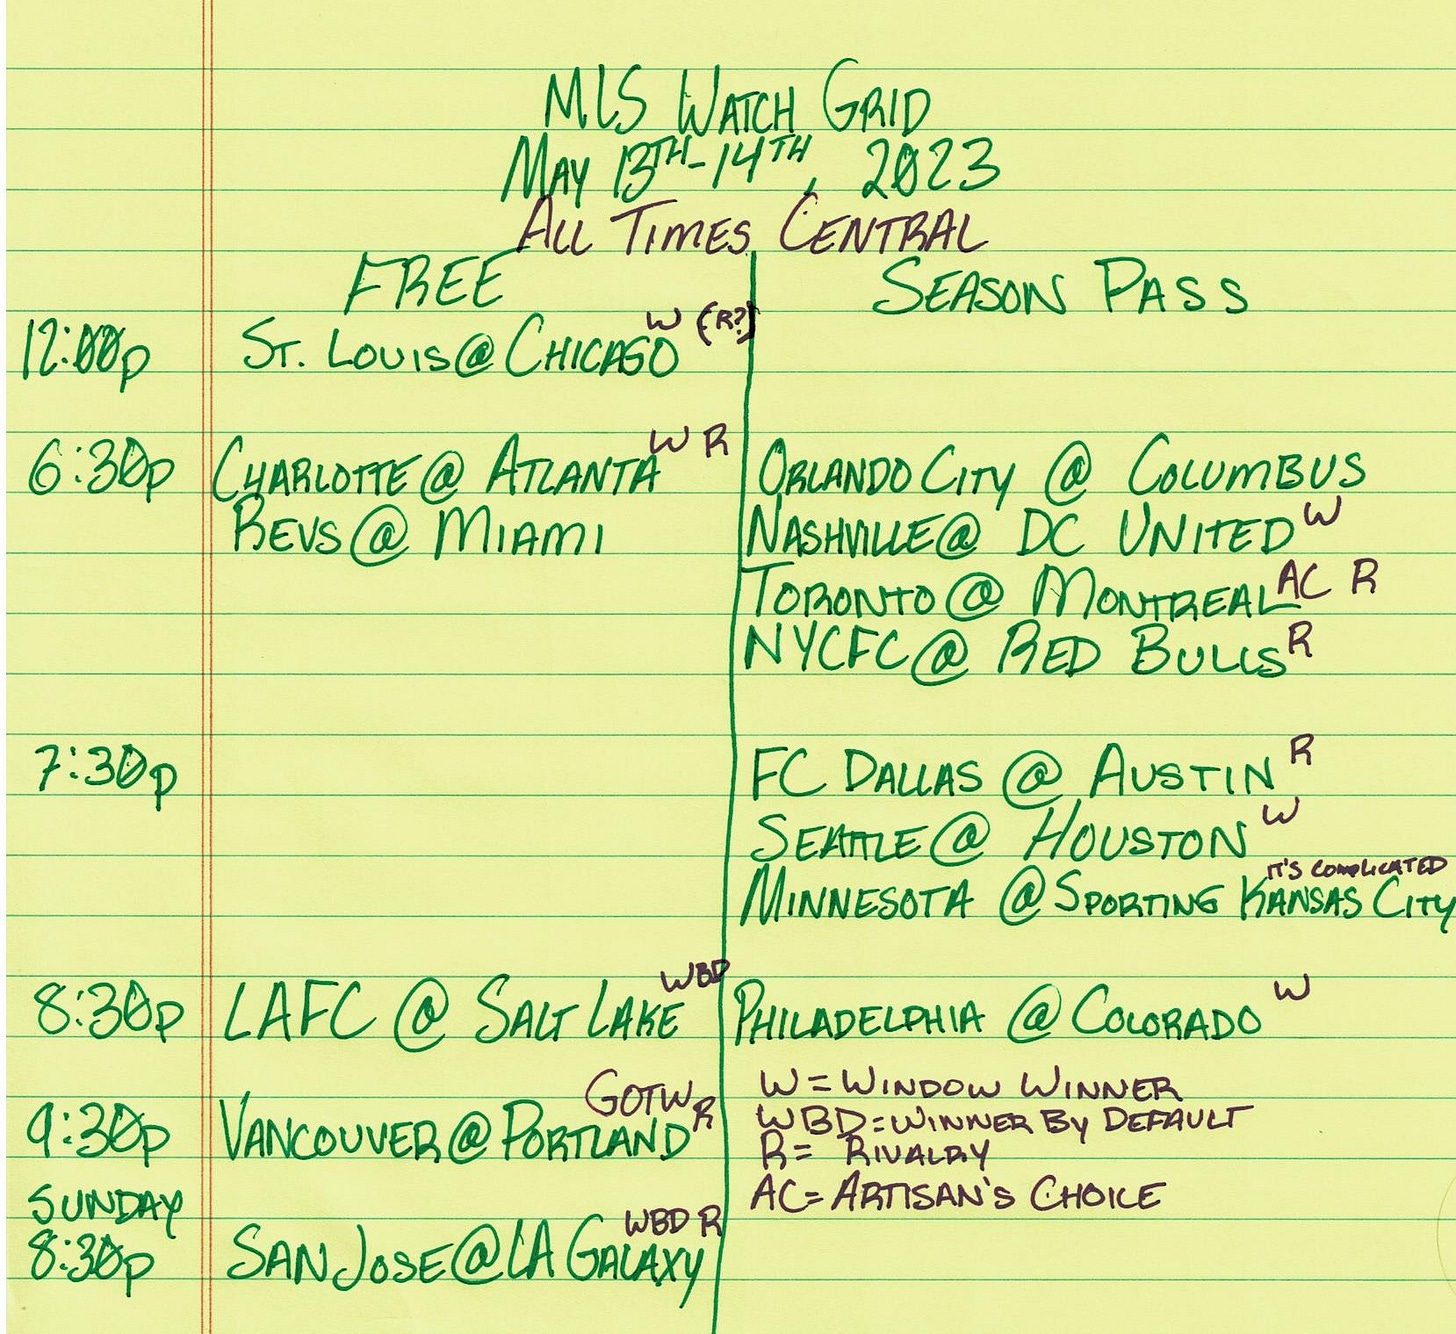 MLS WATCH GRID
MAY 13TH-14TH, 2023
ALL TIMES CENTRAL
FREE SEASON PASS
12:00p ST. LOUIS @ CHICAGO W (R?)
6:30p CHARLOTTE @ ATLANTA W R ORLANDO CITY @ COLUMBUS
REVS @ MIAMI NASHVILLE @ DC UNITED W
TORONTO @ MONTREAL AC R
NYCFC @ RED BULLS R
7:30p FC DALLAS @ AUSTIN R
SEATTLE @ HOUSTON W
MINNESOTA @ SPORTING KANSAS CITY IT'S COMPLICATED
8:30p LAFC @ SALT LAKE WBD PHILADELPHIA @ COLORADO W
W = WINDOW WINNER
9:30p VANCOUVER @ PORTLAND GOTW R WBD = WINNER BY DEFAULT
R = RIVALRY
SUNDAY AC = ARTISAN'S CHOICE
8:30p SAN JOSE @ LA GALAXY WBD R